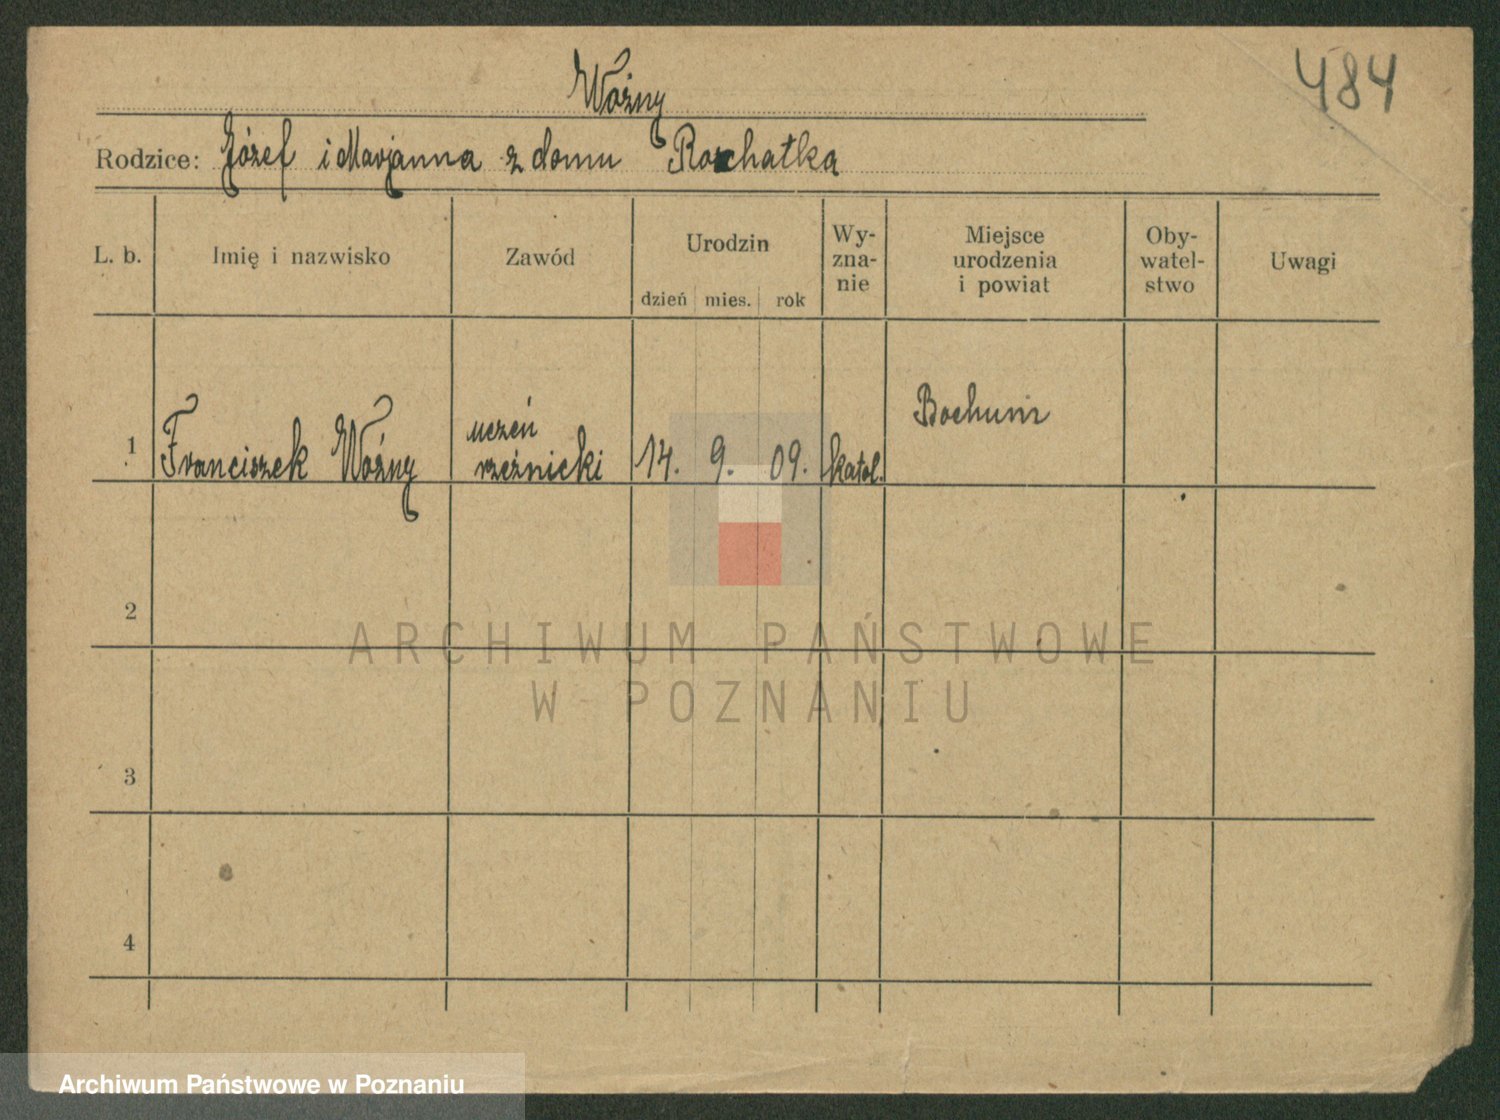 484
Woźny
Rodzice: Józef i Marjanna z domu
L. b. Imię i nazwisko Zawód Urodzin Wy-
zna-
nie Miejsce
urodzenia
i powiat Oby-
watel-
stwo Uwagi
dzień mies. rok
1 Franciszek Woźny uczeń
rzeźnicki 14. 9. 09. katol. Bochum
2
3
4
ARCHIWUM PAŃSTWOWE
W POZNANIU
Archiwum Państwowe w Poznaniu